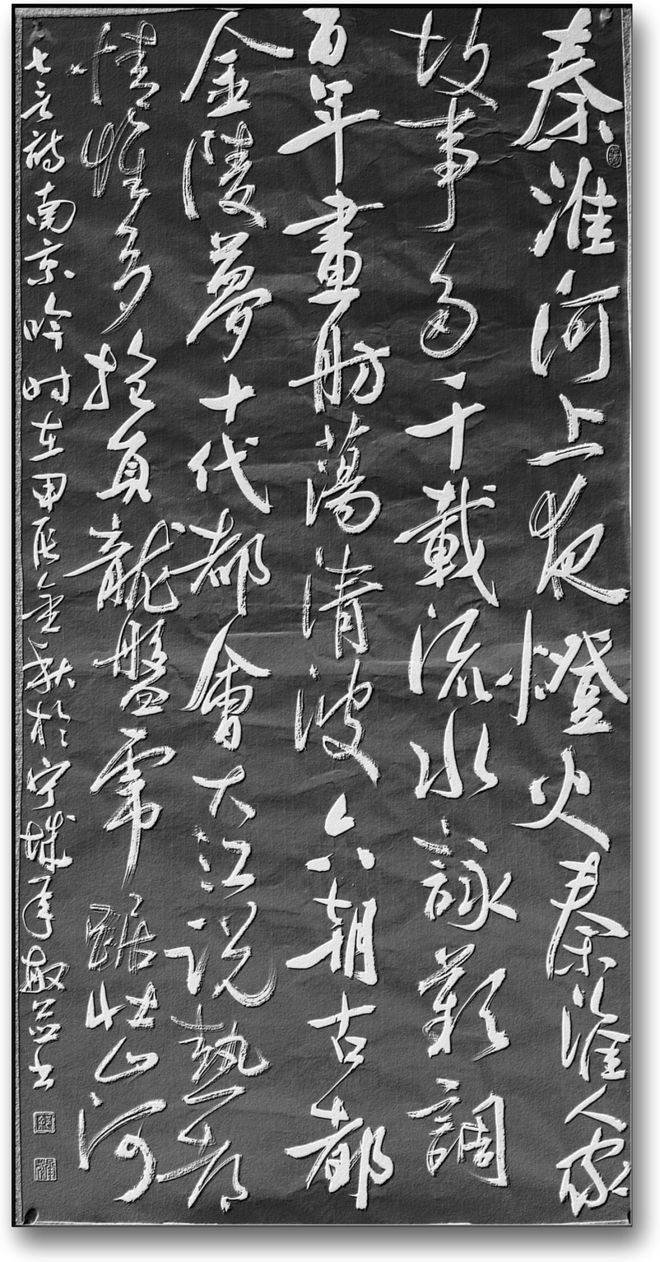 秦淮河上夜燈火秦淮人家
故事多千載流水詠歎調
百年畫舫蕩清波六朝古都
金陵夢十代都會大江说
情多抱負龍盤虎踞壯山河
七言詩南京吟时在甲辰金秋於宁城书